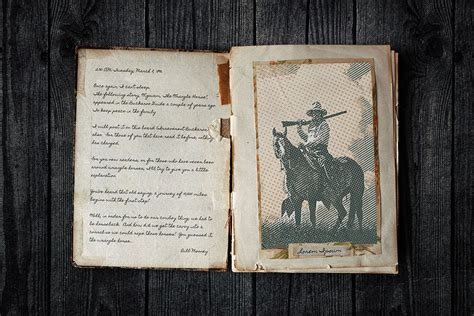 AM Tuesday, March 8,
Once again, I can't sleep.
The following story, The Wrangle Horse!
appeared in the Buckaroo Guide a couple of years ago.
To keep peace in the family
I will post it on this board Buckaroo
also. For those of you that have read it before, nothing
has changed.
For you new readers, or for those who have never been
around wrangle horses, I'll try to give you a little
explanation.
You've heard that old saying, a journey of 1000 miles
begins with the first step?
Well, in order for us to do our cowboy thing, we had to
be horseback. And how did we get the cavvy into a
corral so we could rope those horses? You guessed it,
the wrangle horse.
Bill
Lorem Ipsum